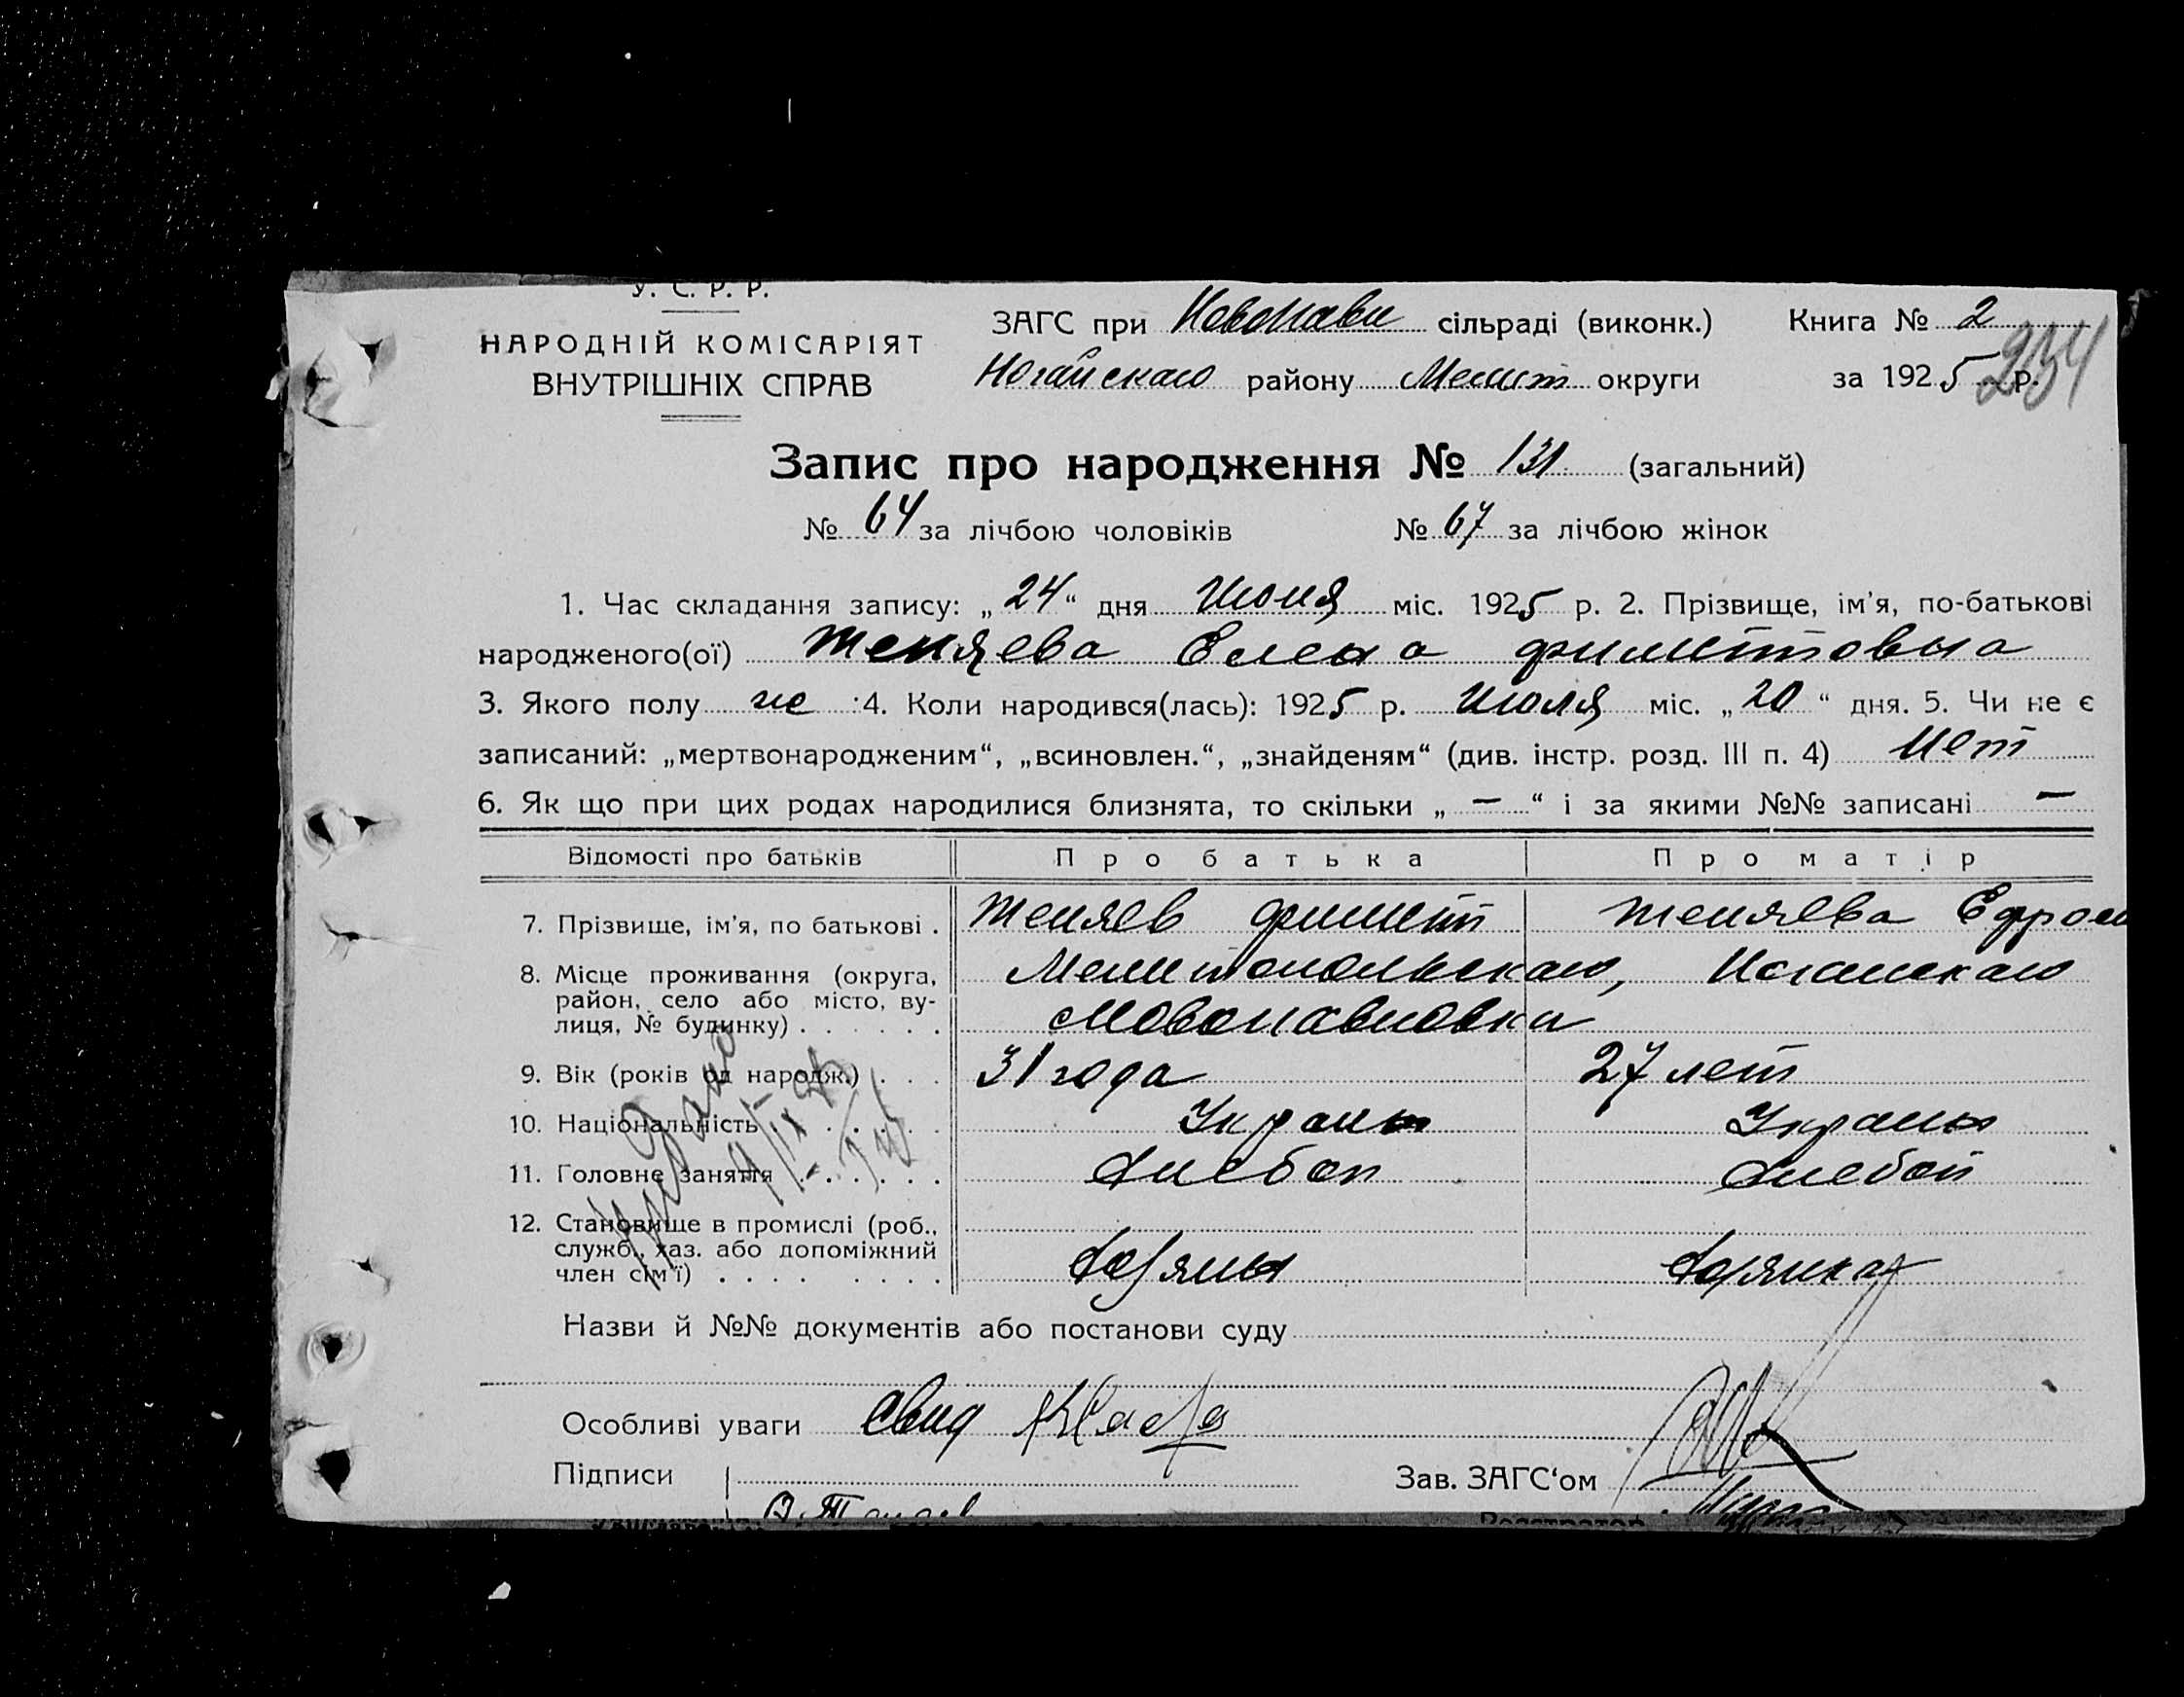 У. С. Р. Р.
НАРОДНІЙ КОМІСАРІЯТ
ВНУТРІШНІХ СПРАВ
ЗАГС при Новопавл сільраді (виконк.) Книга № 2
Ногайскаго району Мелит округи за 1925 р.
234
Запис про народження № 131 (загальний)
№ 64 за лічбою чоловіків № 67 за лічбою жінок
1. Час складання запису: „24“ дня Июля міс. 1925 р. 2. Прізвище, ім'я, по-батькові
народженого(ої) Теняева Елена Филиттовна
3. Якого полу же :4. Коли народився(лась): 1925 р. Июля міс. „20“ дня. 5. Чи не є
записаний: „мертвонародженим“, „всиновлен.“, „знайденям“ (див. інстр. розд. III п. 4) Нет
6. Як що при цих родах народилися близнята, то скільки „ — “ і за якими №№ записані —
Відомості про батьків Про батька Про матір
7. Прізвище, ім'я, по батькові . Теняев Филитт Теняева Ефрос
8. Місце проживання (округа, район, село або місто, вулиця, № будинку) Мелитопольскаго, Ногайскаго
Новопавловка
9. Вік (років од народж.) 31 года 27 лет
10. Національність Украин Украин
11. Головне заняття Хлебоп Хлебоп
12. Становище в промислі (роб., служб., хаз. або допоміжний член сім'ї) Хозяин Хозяйка
Назви й №№ документів або постанови суду
Особливі уваги Свид
Підписи Зав. ЗАГС‘ом
Реєстратор